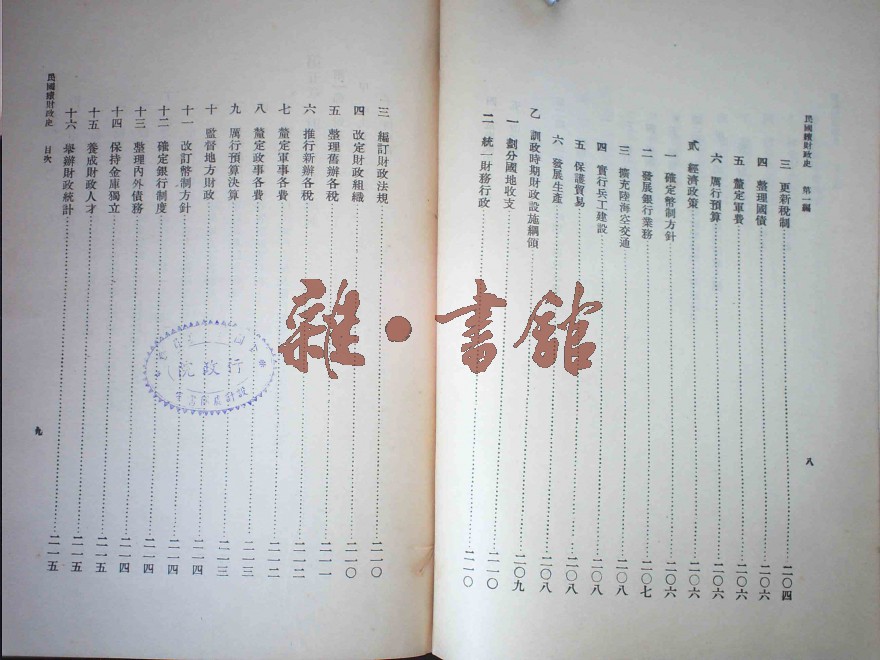 民國續財政史　第一編
三　更新稅制……二〇四
四　整理國債……二〇六
五　釐定軍費……二〇六
六　厲行預算……二〇六
貳　經濟政策……二〇六
一　確定幣制方針……二〇六
二　發展銀行業務……二〇七
三　擴充陸海空交通……二〇八
四　實行兵工建設……二〇八
五　保護貿易……二〇八
六　發展生產……二〇八
乙　訓政時期財政設施綱領……二〇九
一　劃分國地收支……二一〇
二　統一財務行政……二一〇
八
三　編訂財政法規……二一〇
四　改定財政組織……二一〇
五　整理舊辦各稅……二一一
六　推行新辦各稅……二一二
七　釐定軍事各費……二一二
八　釐定政事各費……二一二
九　厲行預算決算……二一三
十　監督地方財政……二一三
十一　改訂幣制方針……二一四
十二　確定銀行制度……二一四
十三　整理內外債務……二一四
十四　保持金庫獨立……二一四
十五　養成財政人才……二一五
十六　舉辦財政統計……二一五
民國續財政史　目次
九
雜·書館
行政院